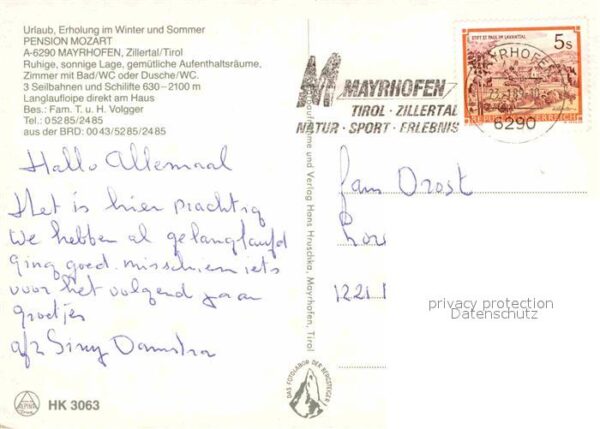 Urlaub, Erholung im Winter und Sommer
PENSION MOZART
A-6290 MAYRHOFEN, Zillertal/Tirol
Ruhige, sonnige Lage, gemütliche Aufenthaltsräume,
Zimmer mit Bad/WC oder Dusche/WC.
3 Seilbahnen und Schilifte 630–2100 m
Langlaufloipe direkt am Haus
Bes.: Fam. T. u. H. Volgger
Tel.: 05285/2485
aus der BRD: 0043/5285/2485
Hallo Allemaal
Het is hier prachtig
We hebben al gelanglaufd
Ging goed. misschien iets
voor het volgend jaar
groetjes
Siny Damstra
HK 3063
und Verlag Hans Hruschka, Mayrhofen, Tirol
DAS FOTOLABOR DER BERGSTEIGER
STIFT ST. PAUL IM LAVANTTAL
5s
REPUBLIK ÖSTERREICH
MAYRHOFEN
6290
M MAYRHOFEN
TIROL · ZILLERTAL
NATUR · SPORT · ERLEBNIS
Fam Drost
1221
privacy protection
Datenschutz